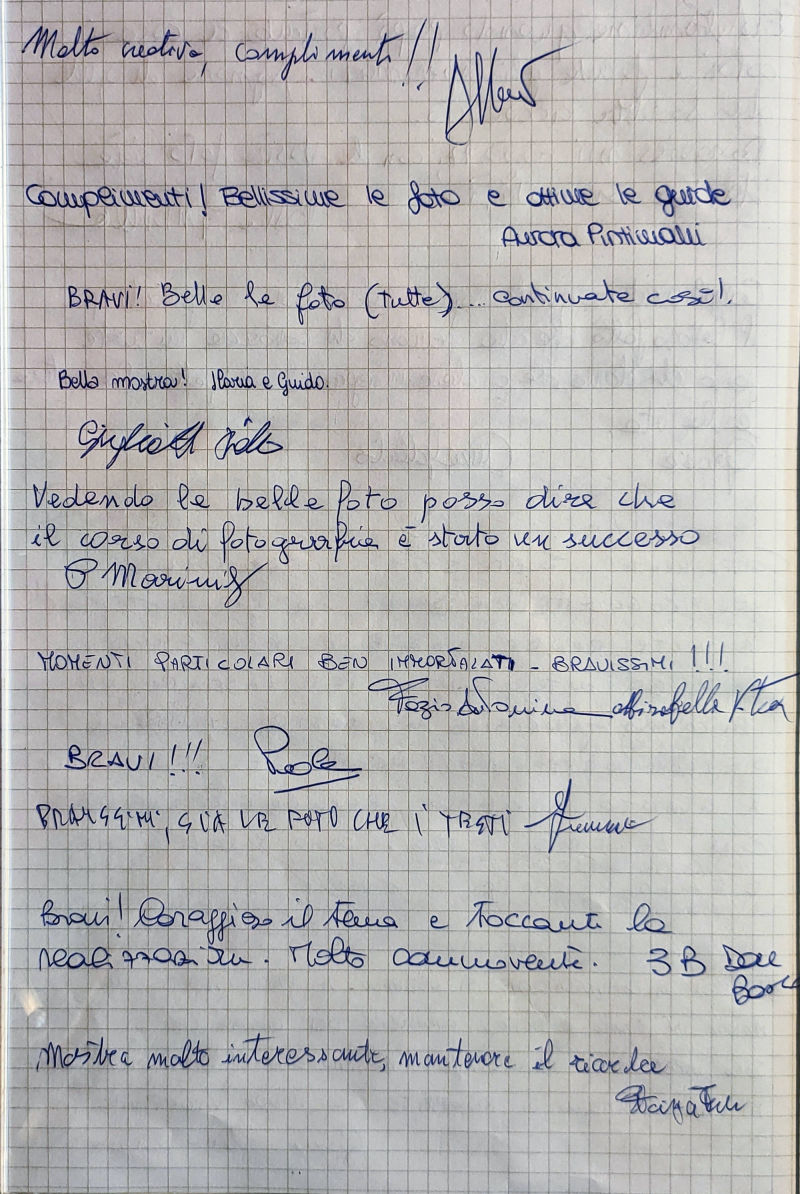 Molto creativa, complimenti!!
Complimenti! Bellissime le foto e ottime le guide
Aurora Pintimalli
BRAVI! Belle le foto (tutte)... continuate così!.
Bella mostra! Ilaria e Guido.
Vedendo le belle foto posso dire che
il corso di fotografia è stato un successo
MOMENTI PARTICOLARI BEN IMMORTALATI - BRAVISSIMI!!!
BRAVI!!! Paola
BRAVISSIMI, SIA LE FOTO CHE I TESTI
Bravi! Coraggioso il tema e toccante la
realizzazione. Molto commovente. 3B Don
Bosco
Mostra molto interessante, mantenere il